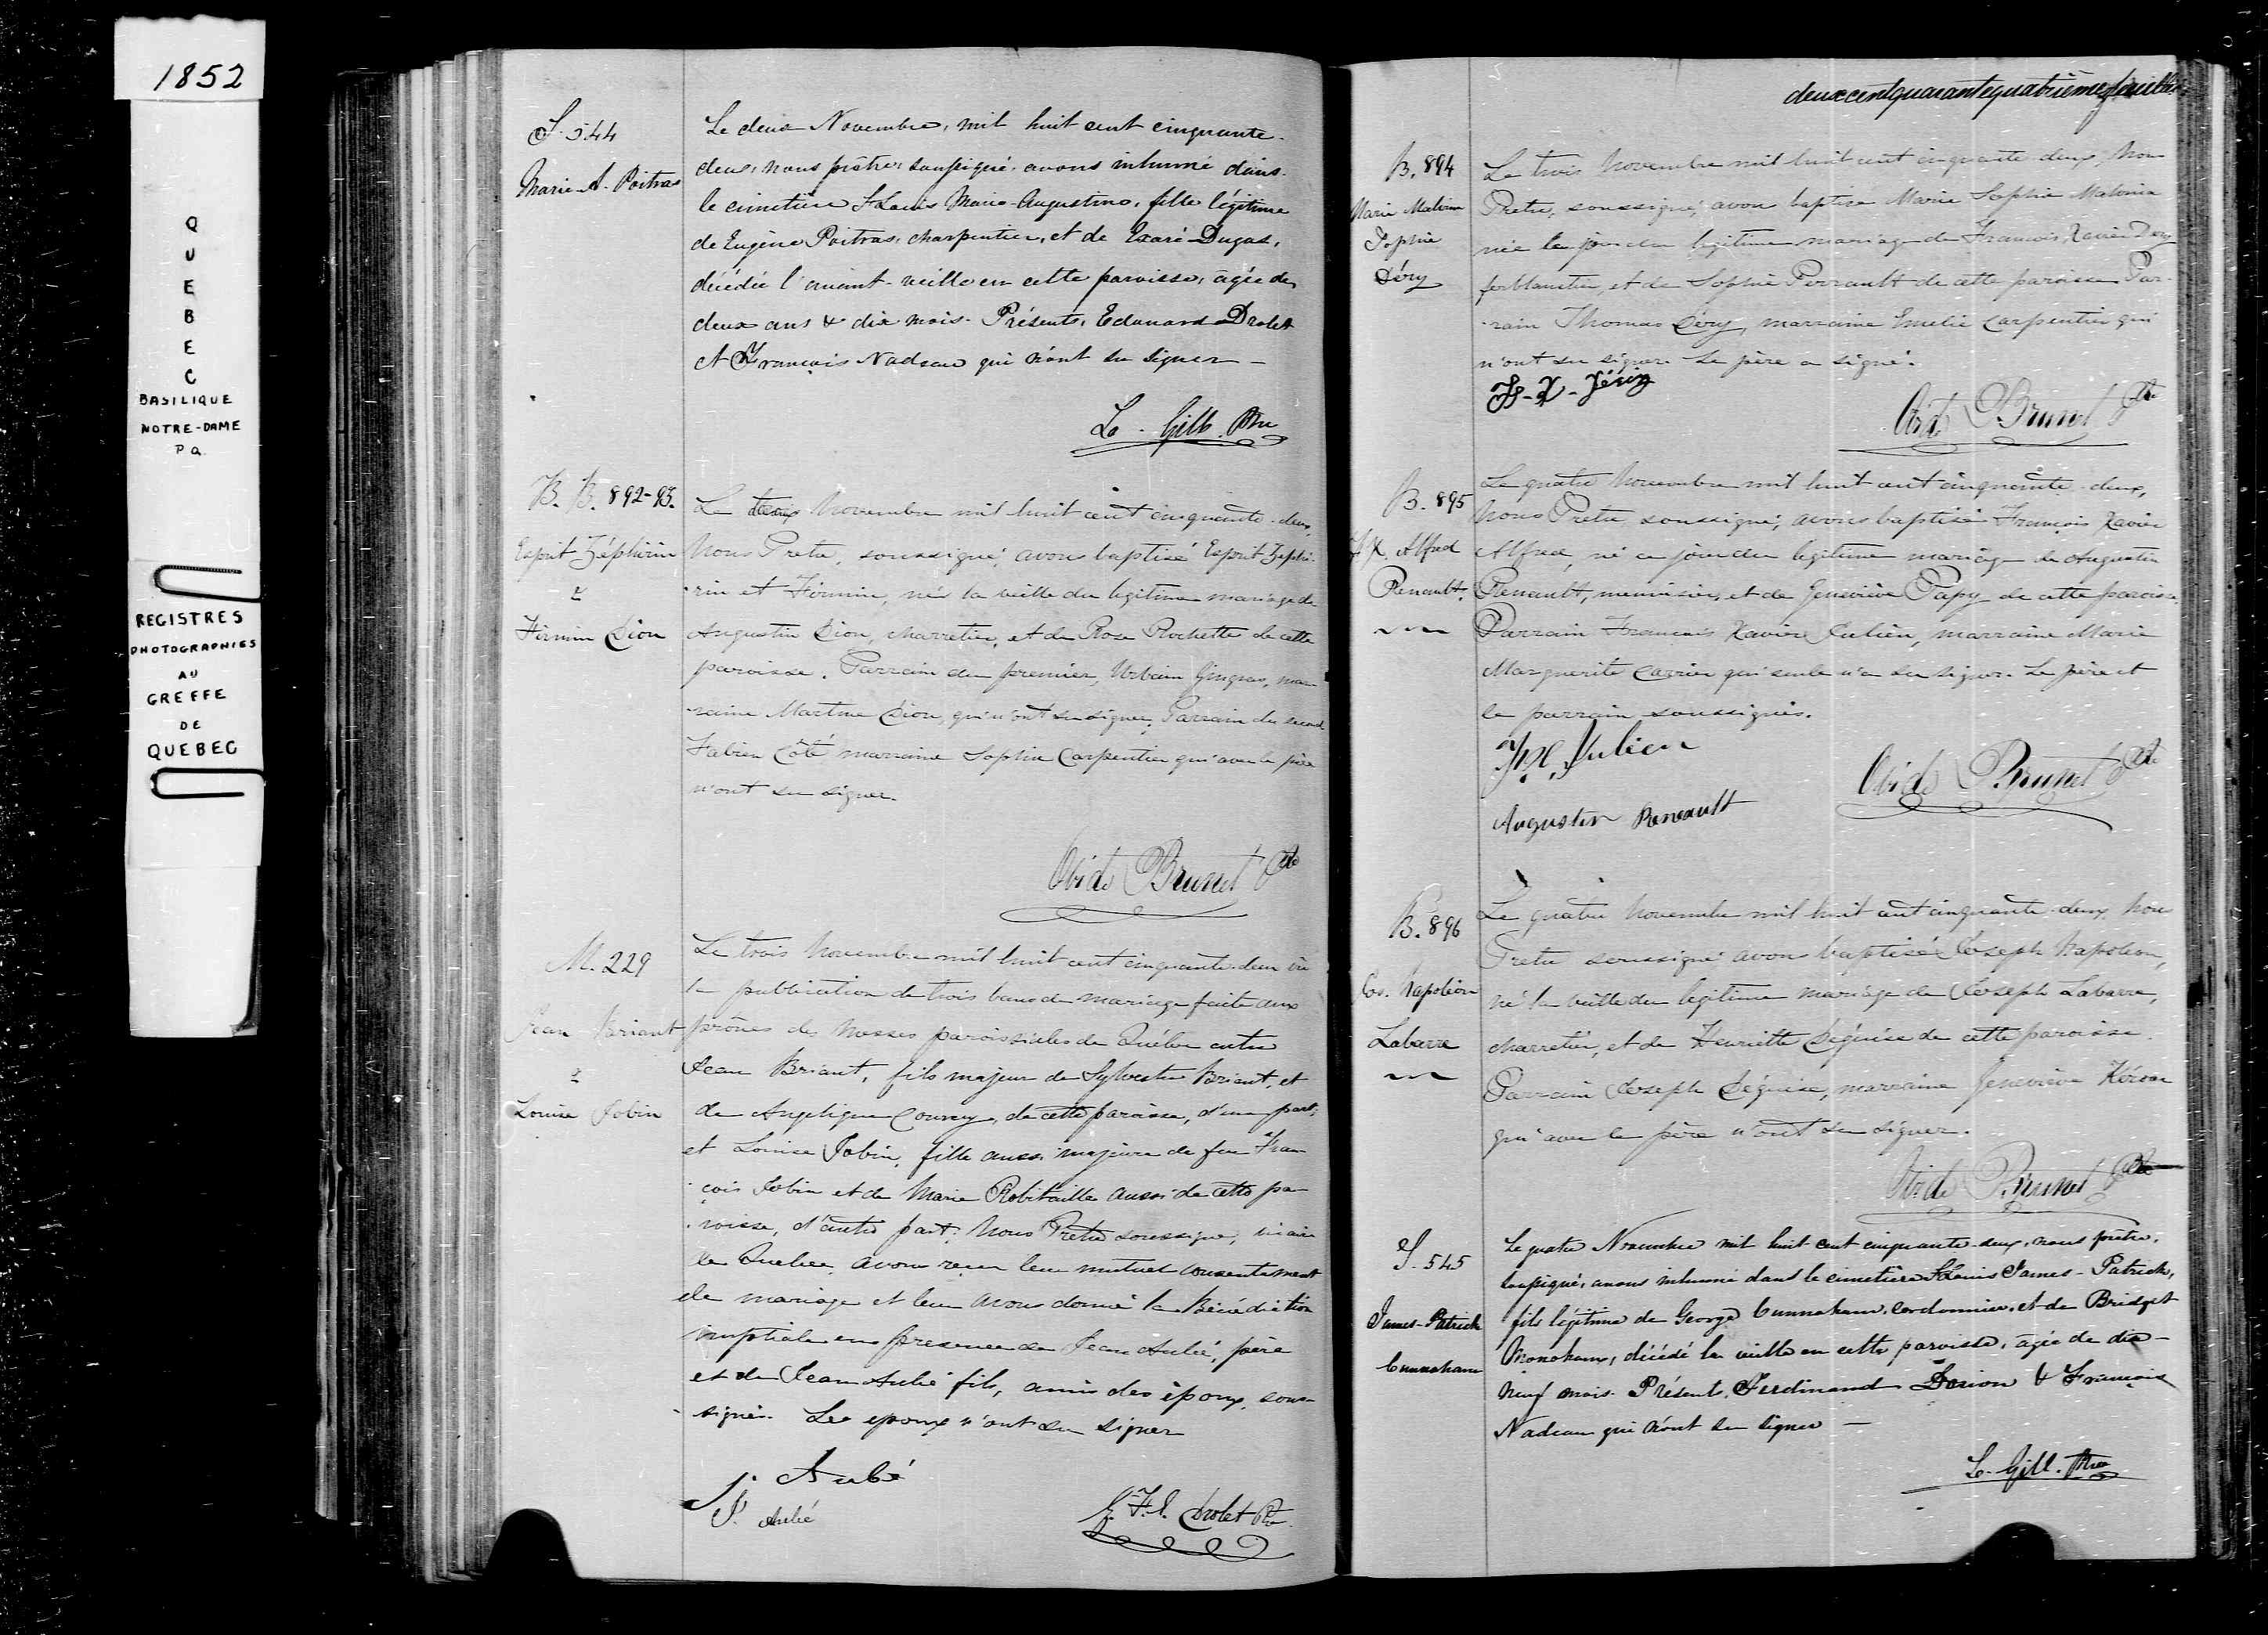 1852
Q
U
E
B
E
C
BASILIQUE
NOTRE-DAME
P Q.
REGISTRES
PHOTOGRAPHIES
AU
GREFFE
DE
QUEBEC
S. 544
Marie A. Poitras
Le deux Novembre, mil huit cent cinquante-
deux, nous prêtre, soussigné, avons inhumé dans
le cimetière St Louis Marie-Augustine, fille légitime
de Eugène Poitras, charpentier, et de Dugas,
décédée l'avant-veille en cette paroisse, agée de
deux ans & dix mois. Présents, Edouard Drolet
et François Nadeau qui n'ont su signer —
Le. Gill. Ptre
B. B. 892-93.
Esprit Zéphirin
&
Firmin Dion
Le deux Novembre mil huit cent cinquante-deux,
Nous Pretre, soussigné, avons baptisé Esprit Zéphi-
rin et Firmin, nés la veille du legitime mariage de
Augustin Dion, charretier, et de Rose Rochette de cette
paroisse. Parrain du premier, Urbain Gingras, mar-
raine Martine Dion, qui n'ont su signer, Parrain du second
Fabien Côté marraine Sophie Carpentier qui avec le père
n'ont su signer.
Ovide Brunet Ptre
M. 229
Jean Briant
&
Louise Jobin
Le trois Novembre mil huit cent cinquante-deux vu
la publication de trois bans de mariage faite aux
prônes de Messes paroissiales de Québec entre
Jean Briant, fils majeur de Sylvestre Briant, et
de Angelique Courcy, de cette paroisse, d'une part;
et Louise Jobin, fille aussi majeure de feu Fran-
çois Jobin et de Marie Robitaille aussi de cette pa-
roisse, d'autre part; Nous Pretre soussigné, vicaire
de Quebec, avons reçu leur mutuel consentement
de mariage et leur avons donné la Bénédiction
nuptiale en presence de Jean Aubé, père
et de Jean Aubé fils, amis des époux, sous-
signés. Les epoux n'ont su signer
J. Aubé
J. Aubé
F. Drolet Ptre
deux cent quarante quatrième feuillet
B. 894
Marie Malvina
Sophie
Déry
Le trois Novembre mil huit cent cinquante-deux, Nous
Pretre, soussigné, avons baptisé Marie Sophie Malvina
née le jour du legitime mariage de François Xavier Dery
ferblantier, et de Sophie Perrault de cette paroisse Par-
rain Thomas Déry, marraine Emelie Carpentier qui
n'ont su signer. Le père a signé.
F-X-Déry
Ovide Brunet Ptre
B. 895
F X. Alfred
Renault.
Le quatre Novembre mil huit cent cinquante-deux,
Nous Pretre soussigné, avons baptisé François Xavier
Alfred, né ce jour du legitime mariage de Augustin
Renault, menuisier, et de Geneviève Papy de cette paroisse,
Parrain Francois Xavier Julien, marraine Marie
Marguerite Carrier qui seule n'a su signer. Le père et
le parrain soussignés.
F. X. Julien
Augustin Renault
Ovide Brunet Ptre
B. 896
Jos. Napoléon
Labarre
Le quatre Novembre mil huit cent cinquante-deux, Nous
Pretre soussigné avons baptisé Joseph Napoleon,
né la veille du legitime mariage de Joseph Labarre,
charretier, et de Henriette Déguise de cette paroisse.
Parrain Joseph Déguise, marraine Geneviève
qui avec le père n'ont su signer.
Ovide Brunet Ptre
S. 545
James-Patrick
Cunnaham
Le quatre Novembre mil huit cent cinquante-deux, nous prêtre,
soussigné, avons inhumé dans le cimetière St Louis James-Patrick,
fils légitime de George Cunnaham, cordonnier, et de Bridget
Monohan, décédé la veille en cette paroisse, âgée de dix-
neuf mois. Présents, Ferdinand Dorion & François
Nadeau qui n'ont su signer —
Le. Gill. Ptre